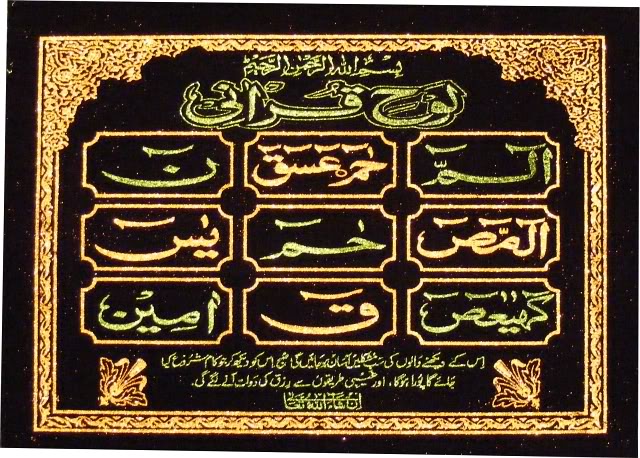 بسم الله الرحمن الرحیم
لوح قرآنی
الٓمّٓ حٰمٓ عٓسٓقٓ نٓ
الٓمّٓصٓ حٰمٓ یٰسٓ
کٓھٰیٰعٓصٓ قٓ اٰمِین
اس کے دیکھنے والوں کی سب مشکلیں آسان ہو جائیں گی صبح اس کو دیکھ کر جو کام شروع کیا
جائے گا پورا ہوگا، اور غیبی طریقوں سے رزق کی دولت آنے لگے گی۔
ان شاء اللہ تعالیٰ